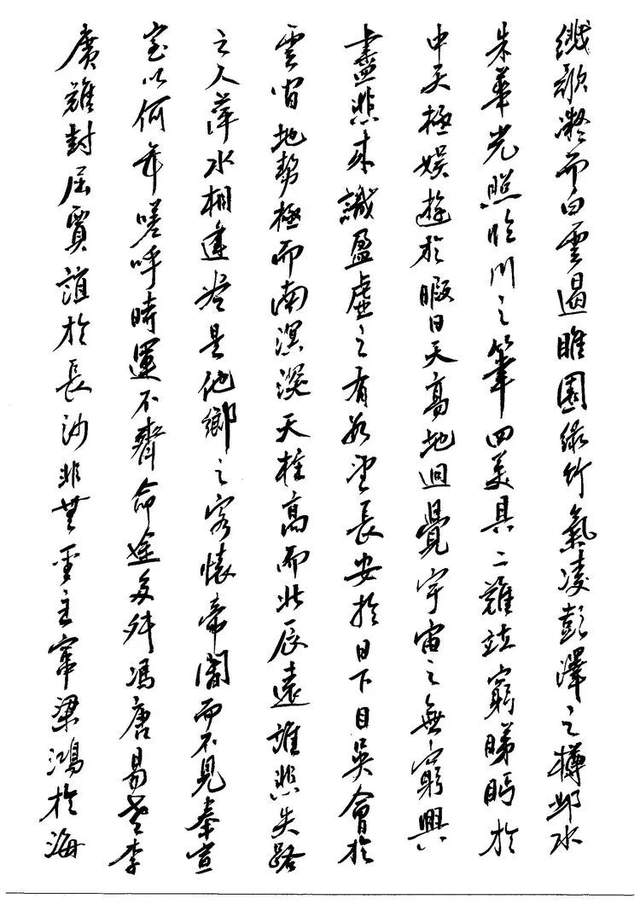 纖歌凝而白雲遏睢園綠竹氣凌彭澤之樽鄴水
朱華光照臨川之筆四美具二難竝窮睇眄於
中天極娛遊於暇日天高地迥覺宇宙之無窮興
盡悲來識盈虛之有數望長安於日下目吳會於
雲間地勢極而南溟深天柱高而北辰遠誰悲失路
之人萍水相逢盡是他鄉之客懷帝閽而不見奉宣
室以何年嗟呼時運不齊命途多舛馮唐易老李
廣難封屈賈誼於長沙非無聖主竄梁鴻於海